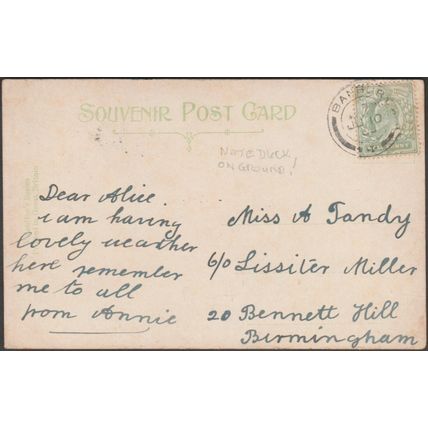 SOUVENIR POST CARD
BANBURY
NOTE DUCK
ON GROUND!
Dear Alice.
i am having
lovely weather
here remember
me to all
from Annie
Miss A Tandy
c/o Lissiter Miller
20 Bennett Hill
Birmingham